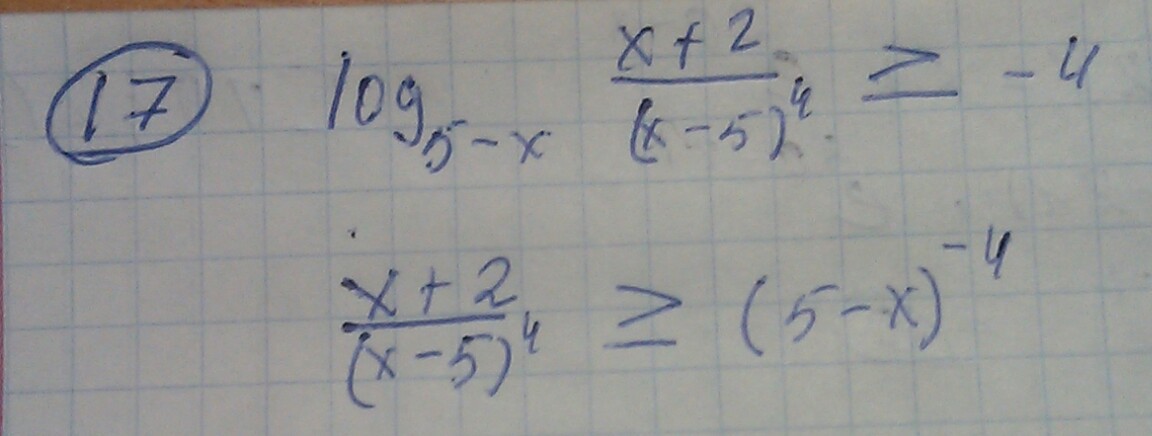 17 log_{5-x} \frac{x+2}{(x-5)^4} ≥ -4
\frac{x+2}{(x-5)^4} ≥ (5-x)^{-4}